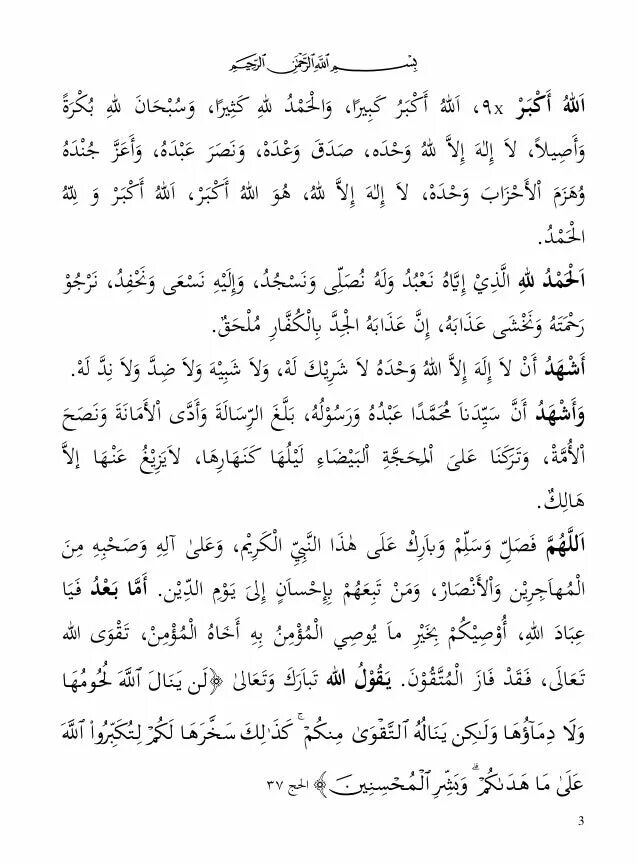 بِسْمِ اللَّهِ الرَّحْمَٰنِ الرَّحِيمِ
اَللهُ أَكْبَرْ ٩x، اَللهُ أَكْبَرُ كَبِيرًا، وَالْحَمْدُ لِلهِ كَثِيرًا، وَسُبْحَانَ لِلهِ بُكْرَةً
وَأَصِيلاً، لاَ إِلٰهَ إِلاَّ للهُ وَحْدَه، صَدَقَ وَعْدَهْ، وَنَصَرَ عَبْدَهُ، وَأَعَزَّ جُنْدَهُ
وُهَزَمَ اْلأَحْزَابَ وَحْدَهْ، لاَ إِلٰهَ إِلاَّ للهُ، هُوَ اللهُ أَكْبَرْ، اَللهُ أَكْبَرْ وَ لِلّهِ
الْحَمْدُ.
اَلْحَمْدُ للهِ الَّذِيْ إِيَّاهُ نَعْبُدُ وَلَهُ نُصَلِّى وَنَسْجُدُ، وَإِلَيْهِ نَسْعَى وَنَحْفِدُ، نَرْجُوْ
رَحْمَتَهُ وَنَخْشَى عَذَابَهُ، إِنَّ عَذَابَهُ الْجِدَّ بِالْكُفَّارِ مُلْحَقٌ.
أَشْهَدُ أَنْ لاَ إِلَهَ إِلاَّ اللهُ وَحْدَهُ لاَ شَرِيْكَ لَهْ، وَلاَ شَبِيْهَ وَلاَ ضِدَّ وَلاَ نِدَّ لَهْ.
وَأَشْهَدُ أَنَّ سَيِّدَناَ مُحَمَّدًا عَبْدُهُ وَرَسُوْلُهُ، بَلَّغَ الرِّسَالَةَ وَأَدَّى اْلأَمَانَةَ وَنَصَحَ
اْلأُمَّةْ، وَتَرَكَنَا عَلىَ اْلمَحَجَّةِ اْلبَيْضَاءِ لَيْلُهَا كَنَهَارِهَا، لاَيَزِيْغُ عَنْهَا إلاَّ
هَالِكٌ.
اَللَّهُمَّ فَصَلِّ وَسَلِّمْ وَبارِكْ عَلَى هٰذَا النَّبِيِّ الْكَرِيْم، وَعَلىٰ آلِهِ وَصَحْبِهِ مِنَ
الْمُهاَجِرِيْن وَاْلأَنْصَارْ، وَمَنْ تَبِعَهُمْ بِإِحْسانٍ إِلىَ يَوْمِ الدِّيْن. أَمَّا بَعْدُ فَيَا
عِبَادَ اللهِ، أُوْصِيْكُمْ بِخَيْرِ ماَ يُوصِي الْمُؤْمِنُ بِهِ أَخَاهُ الْمُؤْمِنْ، تَقْوَى الله
تَعَالَى، فَقَدْ فَازَ الْمُتَّقُوْنَ. يَقُوْلُ الله تَبارَكَ وَتَعَالىٰ ﴿لَن يَنَالَ ٱللَّهَ لُحُومُهَا
وَلَا دِمَآؤُهَا وَلَـٰكِن يَنَالُهُ ٱلتَّقْوَىٰ مِنكُمْ ۚ كَذَٰلِكَ سَخَّرَهَا لَكُمْ لِتُكَبِّرُوا۟ ٱللَّهَ
عَلَىٰ مَا هَدَىٰكُمْ ۗ وَبَشِّرِ ٱلْمُحْسِنِينَ﴾ الحج ٣٧
3